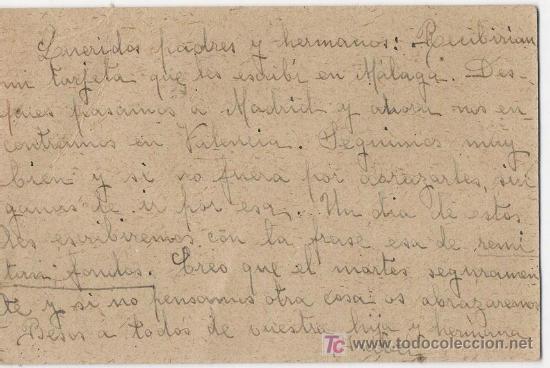 Queridos padres y hermanos: Recibirian
mi tarjeta que les escribí en Málaga. Des-
pues pasamos a Madrid y ahora nos en-
contramos en Valencia. Seguimos muy
bien y si no fuera por abrazarles, sin
ganas de ir por esa. Un dia de estos
les escribiremos con la frase esa de remi
tan fondos. Creo que el martes seguramen
te y si no pensamos otra cosa os abrazaremos
Besos a todos de vuestra hija y hermana
todocoleccion.net